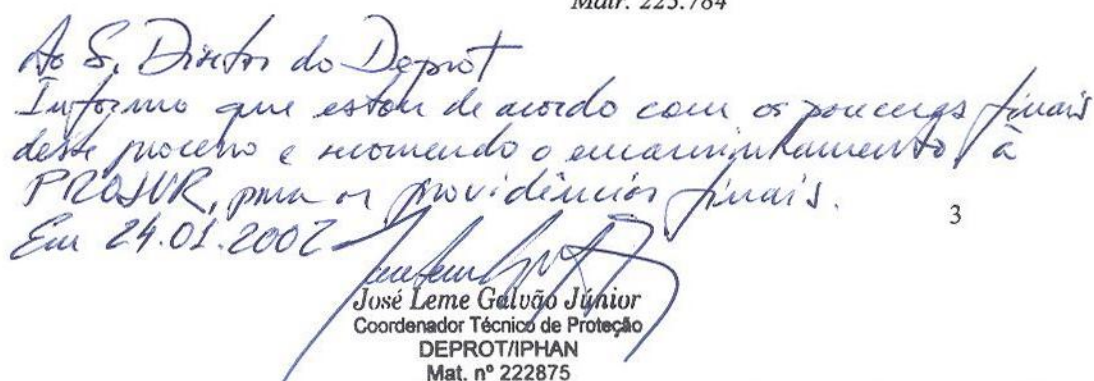 Matr. 223.784
Ao S. Diretor do Deprot
Informo que estou de acordo com os pareceres finais
deste processo e recomendo o encaminhamento à
PROJUR, para as providências finais.
Em 24.01.2002
3
José Leme Galvão Júnior
Coordenador Técnico de Proteção
DEPROT/IPHAN
Mat. nº 222875